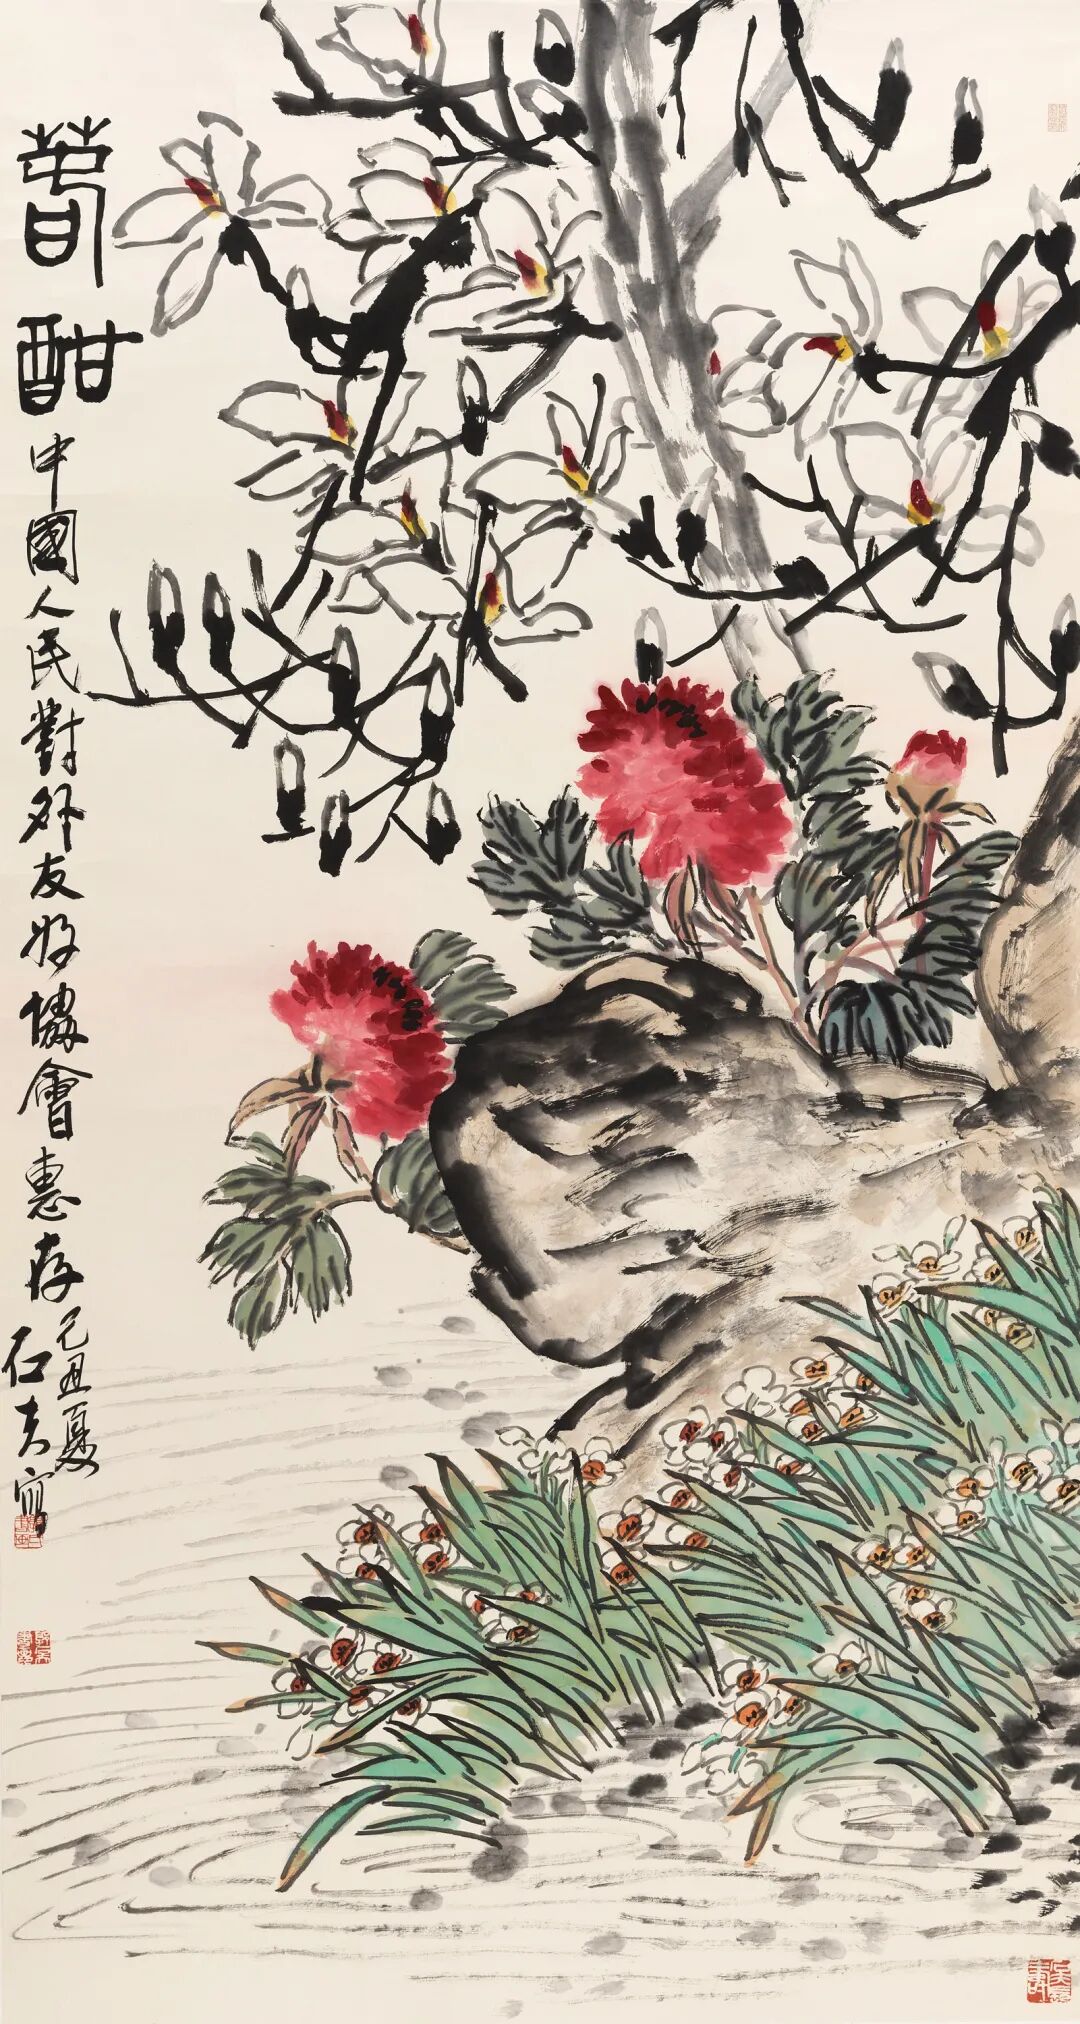 春酣
中國人民對外友好協會惠存
己丑夏
石夫寫